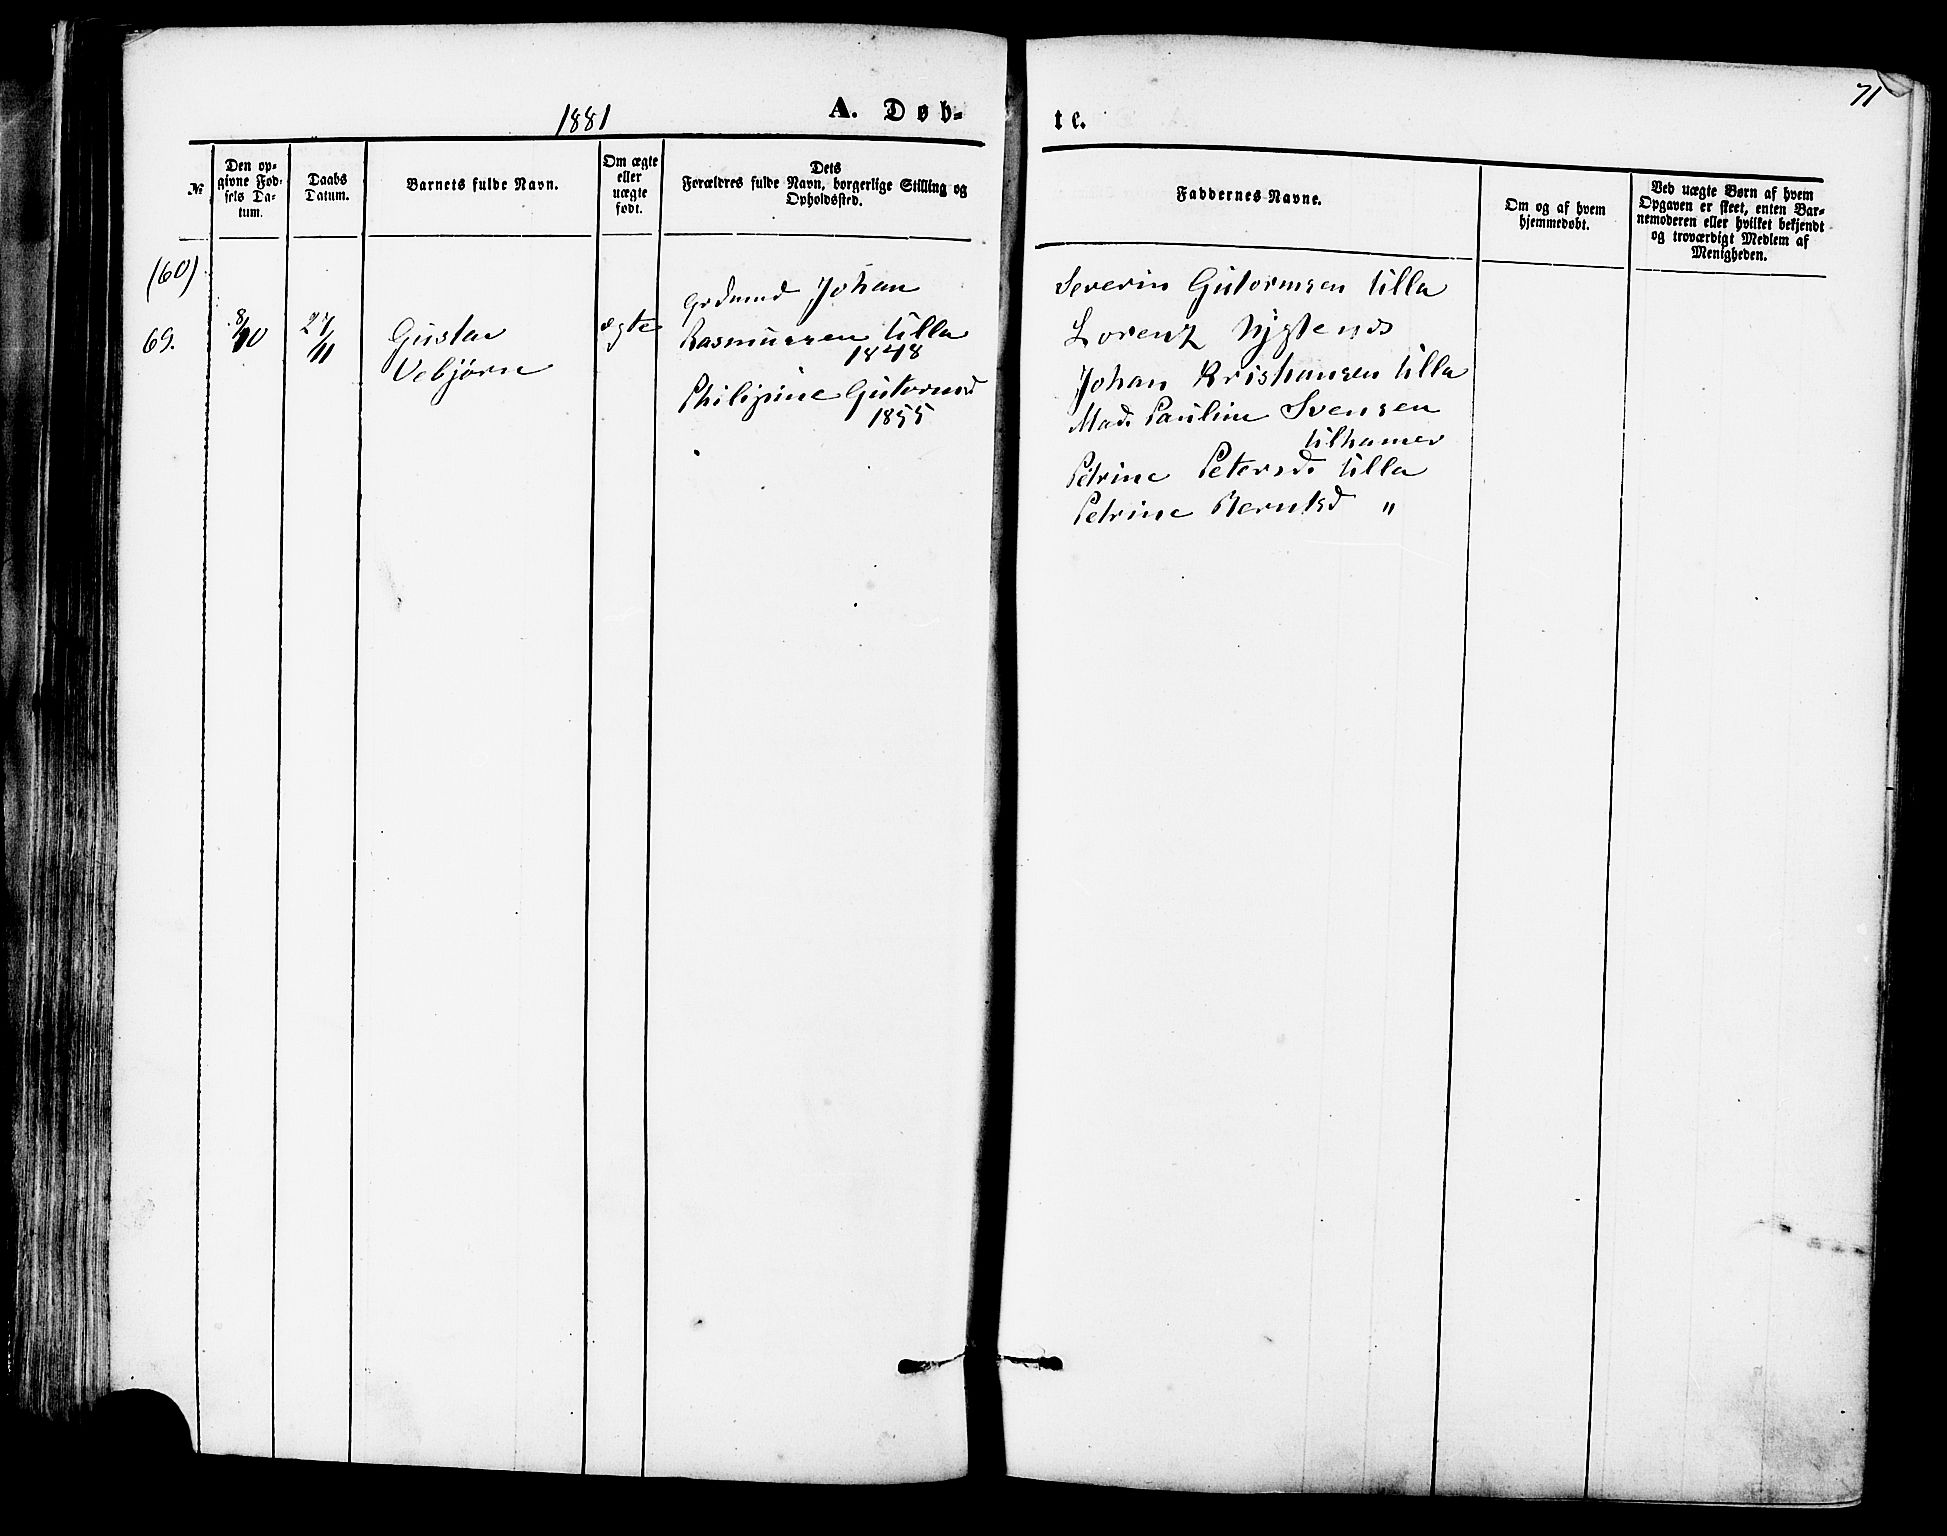 71
1881
A. Døb-
te.
№
Den op-
givne Fød-
sels Da-
tum.
Daabs
Datum.
Barnets fulde Navn.
Om ægte
eller
uægte
født.
Dets
Forældres fulde Navn, borgerlige Stilling og
Opholdssted.
Faddernes Navne.
Om og af hvem
hjemmedøbt.
Ved uægte Børn af hvem
Opgaven er skeet, enten Bar-
nemoderen eller hvilket bekjendt
og troværdigt Medlem af
Menigheden.
(60)
69.
8/10
27/11
Gustav
Vebjørn
ægte
Gudmund Johan
Rasmussen Ulla
1848
Philipine Gutormsd
1855
Severin Gutormsen Ulla
Lorenz
Johan Kristiansen Ulla
Mad. Pauline Svensen
Ulhamer
Petrine Petersd. Ulla
Petrine Berntsd "